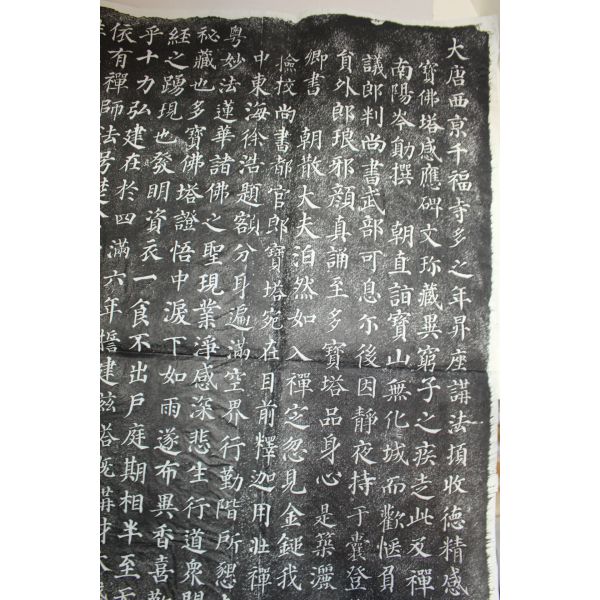 大唐西京千福寺多之年昇座講法頂收徳精感
寶佛塔感應碑文珎藏異窮子之疾走此及禪
南陽岑勛撰 朝直詣寶山無化城而歡愜負
議郎判尚書武部可息尒後因靜夜持于囊登
貟外郎琅邪顔真誦至多寶塔品身心是築灑
卿書 朝散大夫泊然如入禪㝎忽見金鎚我
撿挍尚書都官郎寶塔宛在目前釋迦用壯禪
中東海徐浩題額分身遍滿空界行勤階所懇
粤妙法蓮華諸佛之聖現業淨感深悲生行道衆聞
秘藏也多寶佛塔證悟中淚下如雨遂布異香喜
經之踴現也發明資衣一食不出戸庭期相半至
乎十力弘建在於四滿六年誓建兹塔
依有禪師法号楚